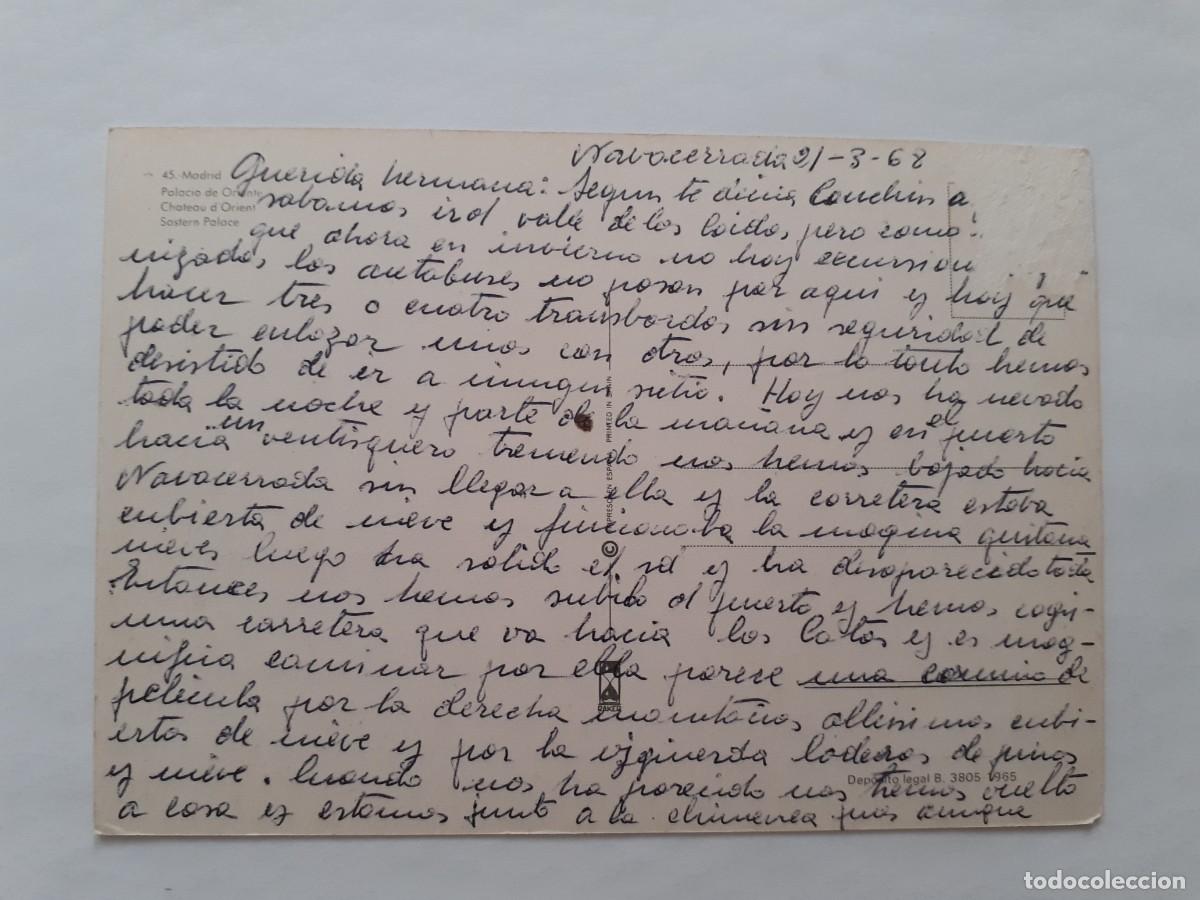 Navacerrada 21-3-68
45.-Madrid
Palacio de Oriente
Chateau d'Orient
Sastern Palace
Querida hermana: Segun te diria Conchin a
sabamos ir al valle de los Caidos pero como
que ahora en invierno no hay excursion
nizados los autobuses no pasan por aqui y hay que
hacer tres o cuatro transbordos sin seguridad de
poder enlazar unos con otros, por lo tanto hemos
desistido de ir a ningun sitio. Hoy nos ha nevado
toda la noche y parte de la mañana y en el puerto
hacia un ventisquero tremendo nos hemos bajado hacia
Navacerrada sin llegar a ella y la carretera estaba
cubierta de nieve y funcionaba la maqina quitana
nieves luego ha salido el sol y ha desaparecido toda
Entonces nos hemos subido al puerto y hemos cogi-
una carretera que va hacia los Cotos y es mag-
nifica caminar por ella parece una comino de
pelicula por la derecha montañas altisimas cubi-
ertas de nieve y por la izquierda laderas de pinos
y nieve. Cuando nos ha parecido nos hemos vuelto
a casa y estamos junto a la chimenea pues aunque
IMPRESO EN ESPAÑA PRINTED IN SPAIN
©
RAKER
Depósito legal B. 3805 1965
todocoleccion